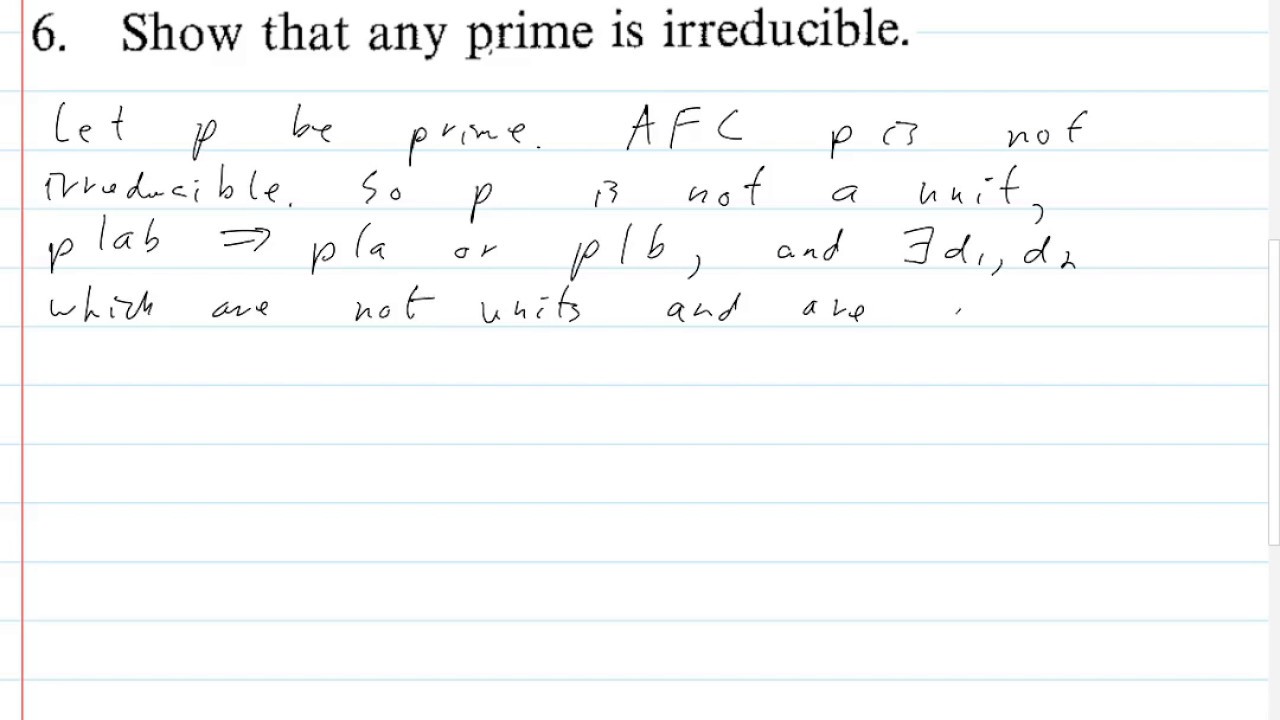 6. Show that any prime is irreducible.
Let p be prime. AFC p is not
irreducible. So p is not a unit,
p|ab ⇒ p|a or p|b, and ∃d₁, d₂
which are not units and are